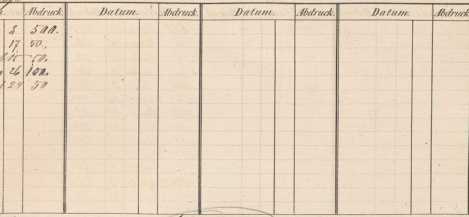 Abdruck. Datum. Abdruck. Datum. Abdruck. Datum. Abdruck
2 500.
17 50.
50.
26 100.
29 50